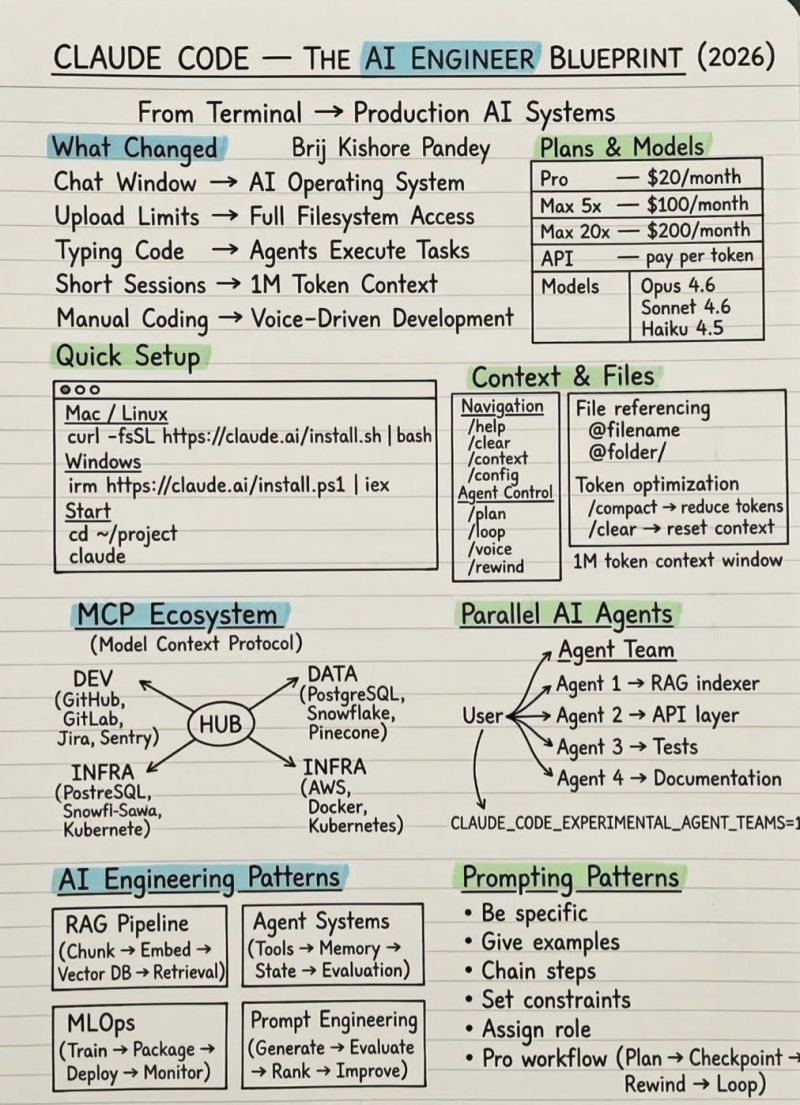 CLAUDE CODE — THE AI ENGINEER BLUEPRINT (2026)
From Terminal → Production AI Systems
What Changed
Brij Kishore Pandey
Chat Window → AI Operating System
Upload Limits → Full Filesystem Access
Typing Code → Agents Execute Tasks
Short Sessions → 1M Token Context
Manual Coding → Voice-Driven Development
Plans & Models
Pro — $20/month
Max 5x — $100/month
Max 20x — $200/month
API — pay per token
Models
Opus 4.6
Sonnet 4.6
Haiku 4.5
Quick Setup
Mac / Linux
curl -fsSL https://claude.ai/install.sh | bash
Windows
irm https://claude.ai/install.ps1 | iex
Start
cd ~/project
claude
Context & Files
Navigation
/help
/clear
/context
/config
Agent Control
/plan
/loop
/voice
/rewind
File referencing
@filename
@folder/
Token optimization
/compact → reduce tokens
/clear → reset context
1M token context window
MCP Ecosystem
(Model Context Protocol)
DEV
(GitHub,
GitLab,
Jira, Sentry)
DATA
(PostgreSQL,
Snowflake,
Pinecone)
HUB
INFRA
(PostreSQL,
Snowfl-Sawa,
Kubernete)
INFRA
(AWS,
Docker,
Kubernetes)
Parallel AI Agents
Agent Team
User
Agent 1 → RAG indexer
Agent 2 → API layer
Agent 3 → Tests
Agent 4 → Documentation
CLAUDE_CODE_EXPERIMENTAL_AGENT_TEAMS=1
AI Engineering Patterns
RAG Pipeline
(Chunk → Embed →
Vector DB → Retrieval)
Agent Systems
(Tools → Memory →
State → Evaluation)
MLOps
(Train → Package →
Deploy → Monitor)
Prompt Engineering
(Generate → Evaluate
→ Rank → Improve)
Prompting Patterns
• Be specific
• Give examples
• Chain steps
• Set constraints
• Assign role
• Pro workflow (Plan → Checkpoint →
Rewind → Loop)